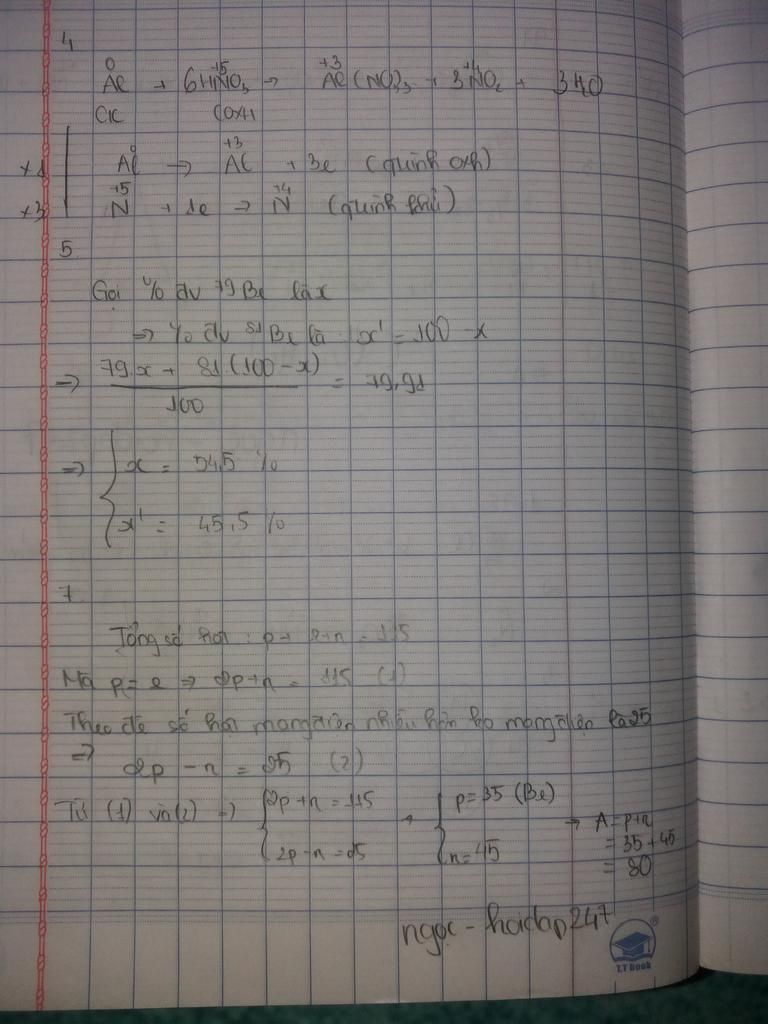 4
0 +5 +3 +4
Al + 6HNO3 → Al(NO3)3 + 3NO2 + 3H2O
CK COXH
0 +3
x1 Al → Al + 3e (quình oxh)
+5 +4
x3 N + 1e → N (quình khử)
5
Gọi % đv 79Br là x
⇒ % đv 81Br là x' = 100 - x
⇒ 79.x + 81.(100-x) / 100 = 79,91
⇒ { x = 54,5 %
x' = 45,5 %
7
Tổng số hạt : p + e + n = 115
Mà p = e ⇒ 2p + n = 115 (1)
Theo đề số hạt mang điện nhiều hơn ko mang điện là 25
⇒ 2p - n = 25 (2)
Từ (1) và (2) ⇒ { 2p + n = 115 → { p = 35 (Br) → A = p + n
2p - n = 25 n = 45 = 35 + 45
= 80
ngọc - hoidap247
®
T.T Book